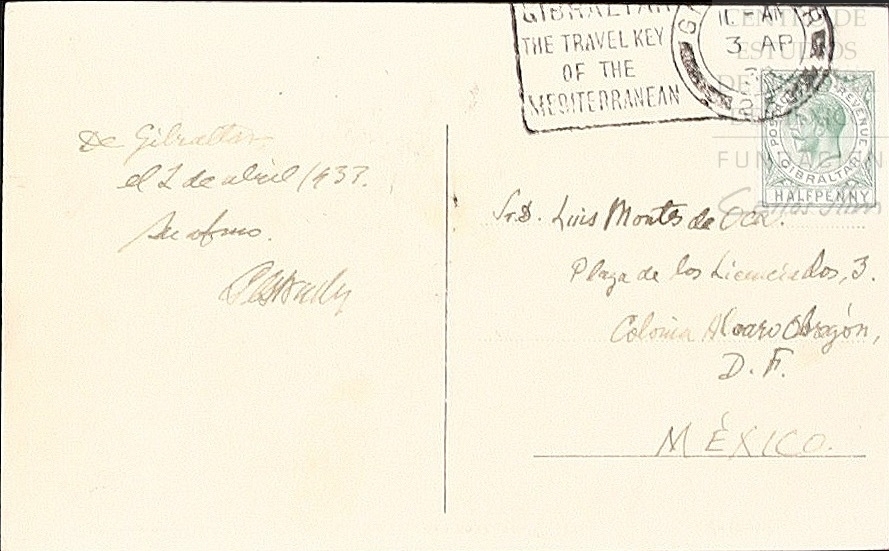 GIBRALTAR
THE TRAVEL KEY
OF THE
MEDITERRANEAN
3 AP
CENTRO DE
ESTUDIOS
DE
FUNDACIÓN
POSTAGE & REVENUE
GIBRALTAR
HALFPENNY
De Gibraltar
el 2 de abril 1933.
Su afmo.
Sr. D. Luis Montes de Oca.
Plaza de los Licenciados, 3.
Colonia Alvaro Obregón,
D. F.
MÉXICO.